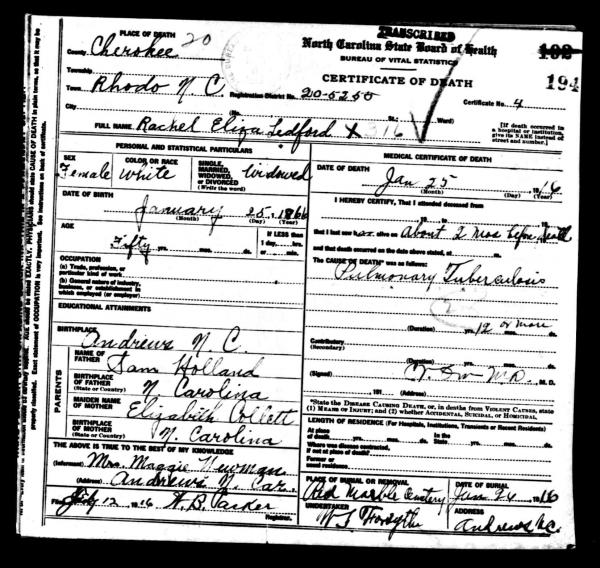 TRANSCRIBED
PLACE OF DEATH
County Cherokee 20
North Carolina State Board of Health
BUREAU OF VITAL STATISTICS
CERTIFICATE OF DEATH
194
Township
Town Rhodo N C
Registration District No. 20-5255
Certificate No. 4
City
(No. St.; Ward)
FULL NAME Rachel Eliza Ledford
[If death occurred in a hospital or institution, give its NAME instead of street and number.]
PERSONAL AND STATISTICAL PARTICULARS
SEX
Female
COLOR OR RACE
White
SINGLE, MARRIED, WIDOWED, or DIVORCED (Write the word)
Widowed
DATE OF BIRTH
January 25, 1866
(Month) (Day) (Year)
AGE
Fifty
yrs. mos. ds.
If LESS than 1 day, hrs. or min.
OCCUPATION
(a) Trade, profession, or particular kind of work
(b) General nature of industry, business, or establishment in which employed (or employer)
EDUCATIONAL ATTAINMENTS
BIRTHPLACE
Andrews N. C.
PARENTS
NAME OF FATHER
Sam Holland
BIRTHPLACE OF FATHER (State or Country)
N Carolina
MAIDEN NAME OF MOTHER
Elizabeth Collett
BIRTHPLACE OF MOTHER (State or Country)
N. Carolina
THE ABOVE IS TRUE TO THE BEST OF MY KNOWLEDGE
(Informant) Mrs. Maggie Newman
(Address) Andrews N. Car.
Filed 12, 1916 W. B. Parker
Registrar.
MEDICAL CERTIFICATE OF DEATH
DATE OF DEATH
Jan 25 1916
(Month) (Day) (Year)
I HEREBY CERTIFY, That I attended deceased
that I last saw alive on About 2 mos before death
and that death occurred on the date above stated, at m.
The CAUSE OF DEATH* was as follows:
Pulmonary Tuberculosis
(Duration) yrs. 12 or more
Contributory (Secondary)
(Duration) yrs. mos. ds.
(Signed) M. D.
191 (Address)
*State the DISEASE CAUSING DEATH, or, in deaths from VIOLENT CAUSES, state (1) MEANS OF INJURY; and (2) whether ACCIDENTAL, SUICIDAL, or HOMICIDAL.
LENGTH OF RESIDENCE (For Hospitals, Institutions, Transients or Recent Residents)
At place of death yrs. mos. ds. In the State yrs. mos. ds.
Where was disease contracted, if not at place of death?
Former or usual residence
PLACE OF BURIAL OR REMOVAL
Red Marble Cemetery
DATE OF BURIAL
Jan 26 1916
UNDERTAKER
W S Forsythe
ADDRESS
Andrews N.C.